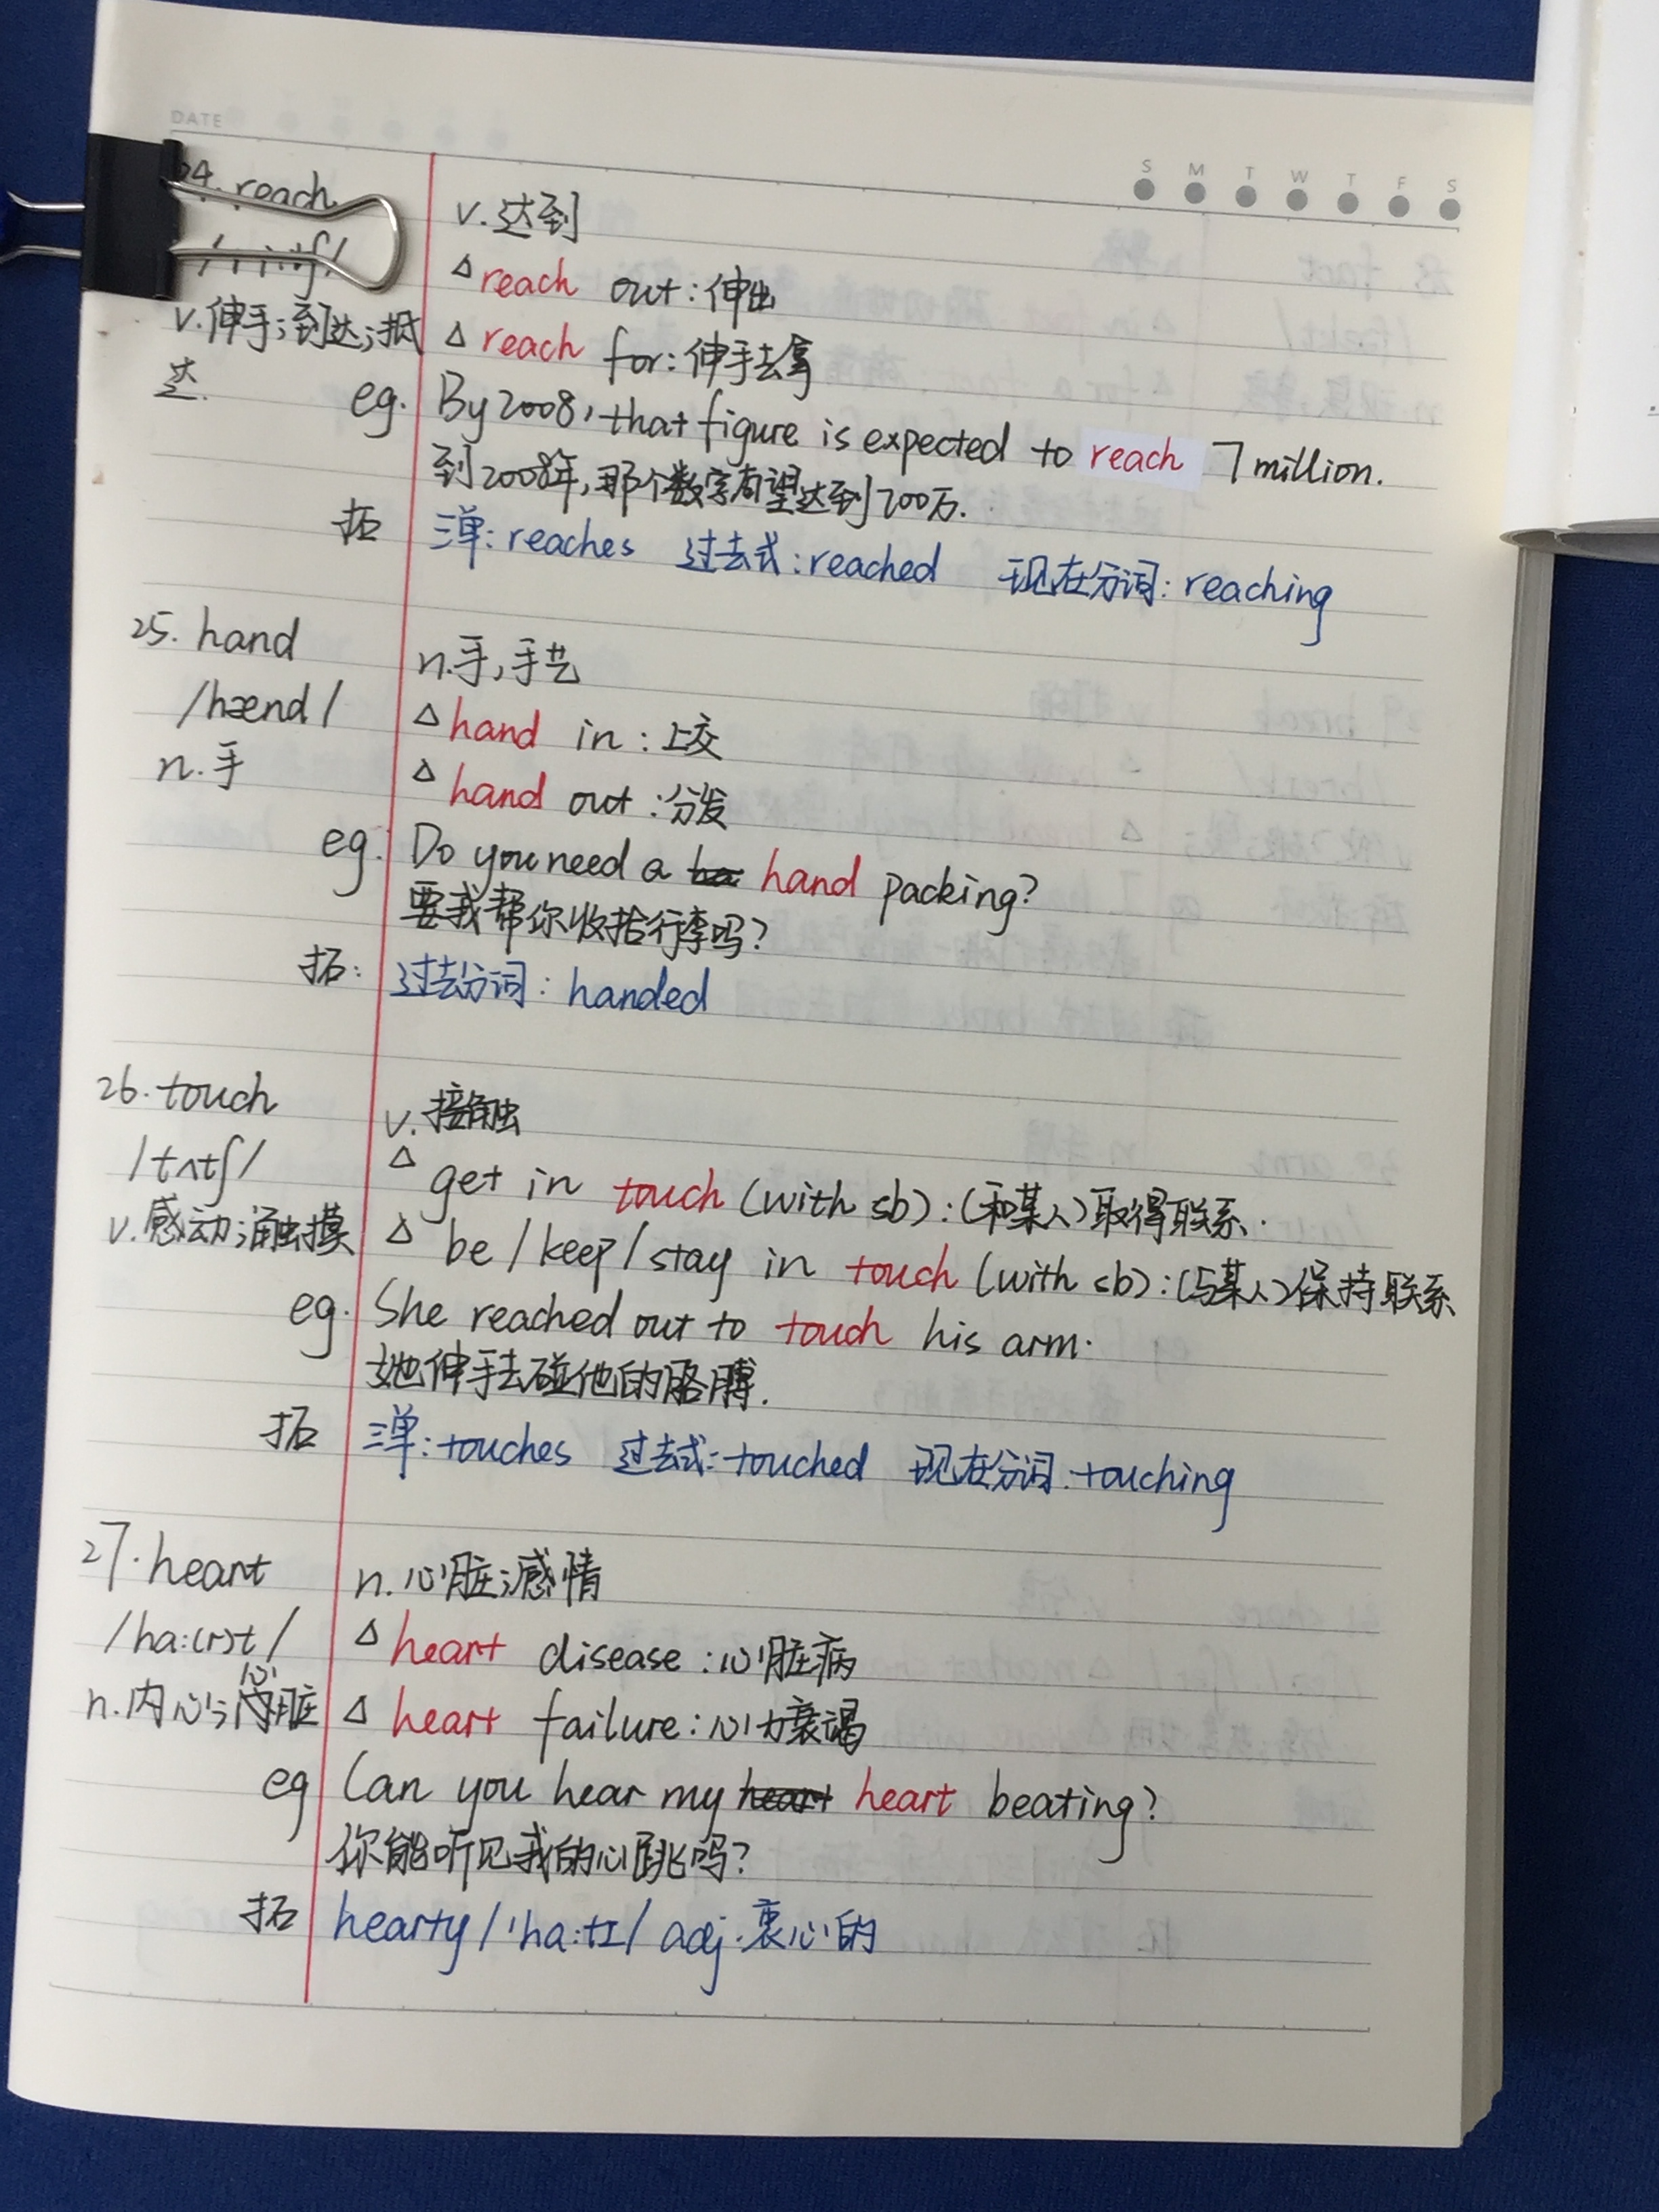 DATE
S M T W T F S
24. reach
v. 达到
/ri:tʃ/
△ reach out: 伸出
v. 伸手; 到达; 抵
△ reach for: 伸手去拿
达.
eg. By 2008, that figure is expected to reach 7 million.
到2008年, 那个数字有望达到700万.
拓 三单: reaches 过去式: reached 现在分词: reaching
25. hand
n. 手, 手艺
/hænd/
△ hand in: 上交
n. 手
△ hand out: 分发
eg. Do you need a hand packing?
要我帮你收拾行李吗?
拓: 过去分词: handed
26. touch
v. 接触
/tʌtʃ/
△ get in touch (with sb): (和某人) 取得联系.
v. 感动; 触摸
△ be / keep / stay in touch (with sb): (与某人) 保持联系
eg. She reached out to touch his arm.
她伸手去碰他的胳膊.
拓 三单: touches 过去式: touched 现在分词: touching
27. heart
n. 心脏; 感情
/ha:(r)t/
△ heart disease: 心脏病
n. 内心; 心脏
△ heart failure: 心力衰竭
eg Can you hear my heart heart beating?
你能听见我的心跳吗?
拓 hearty /'ha:tɪ/ adj. 衷心的